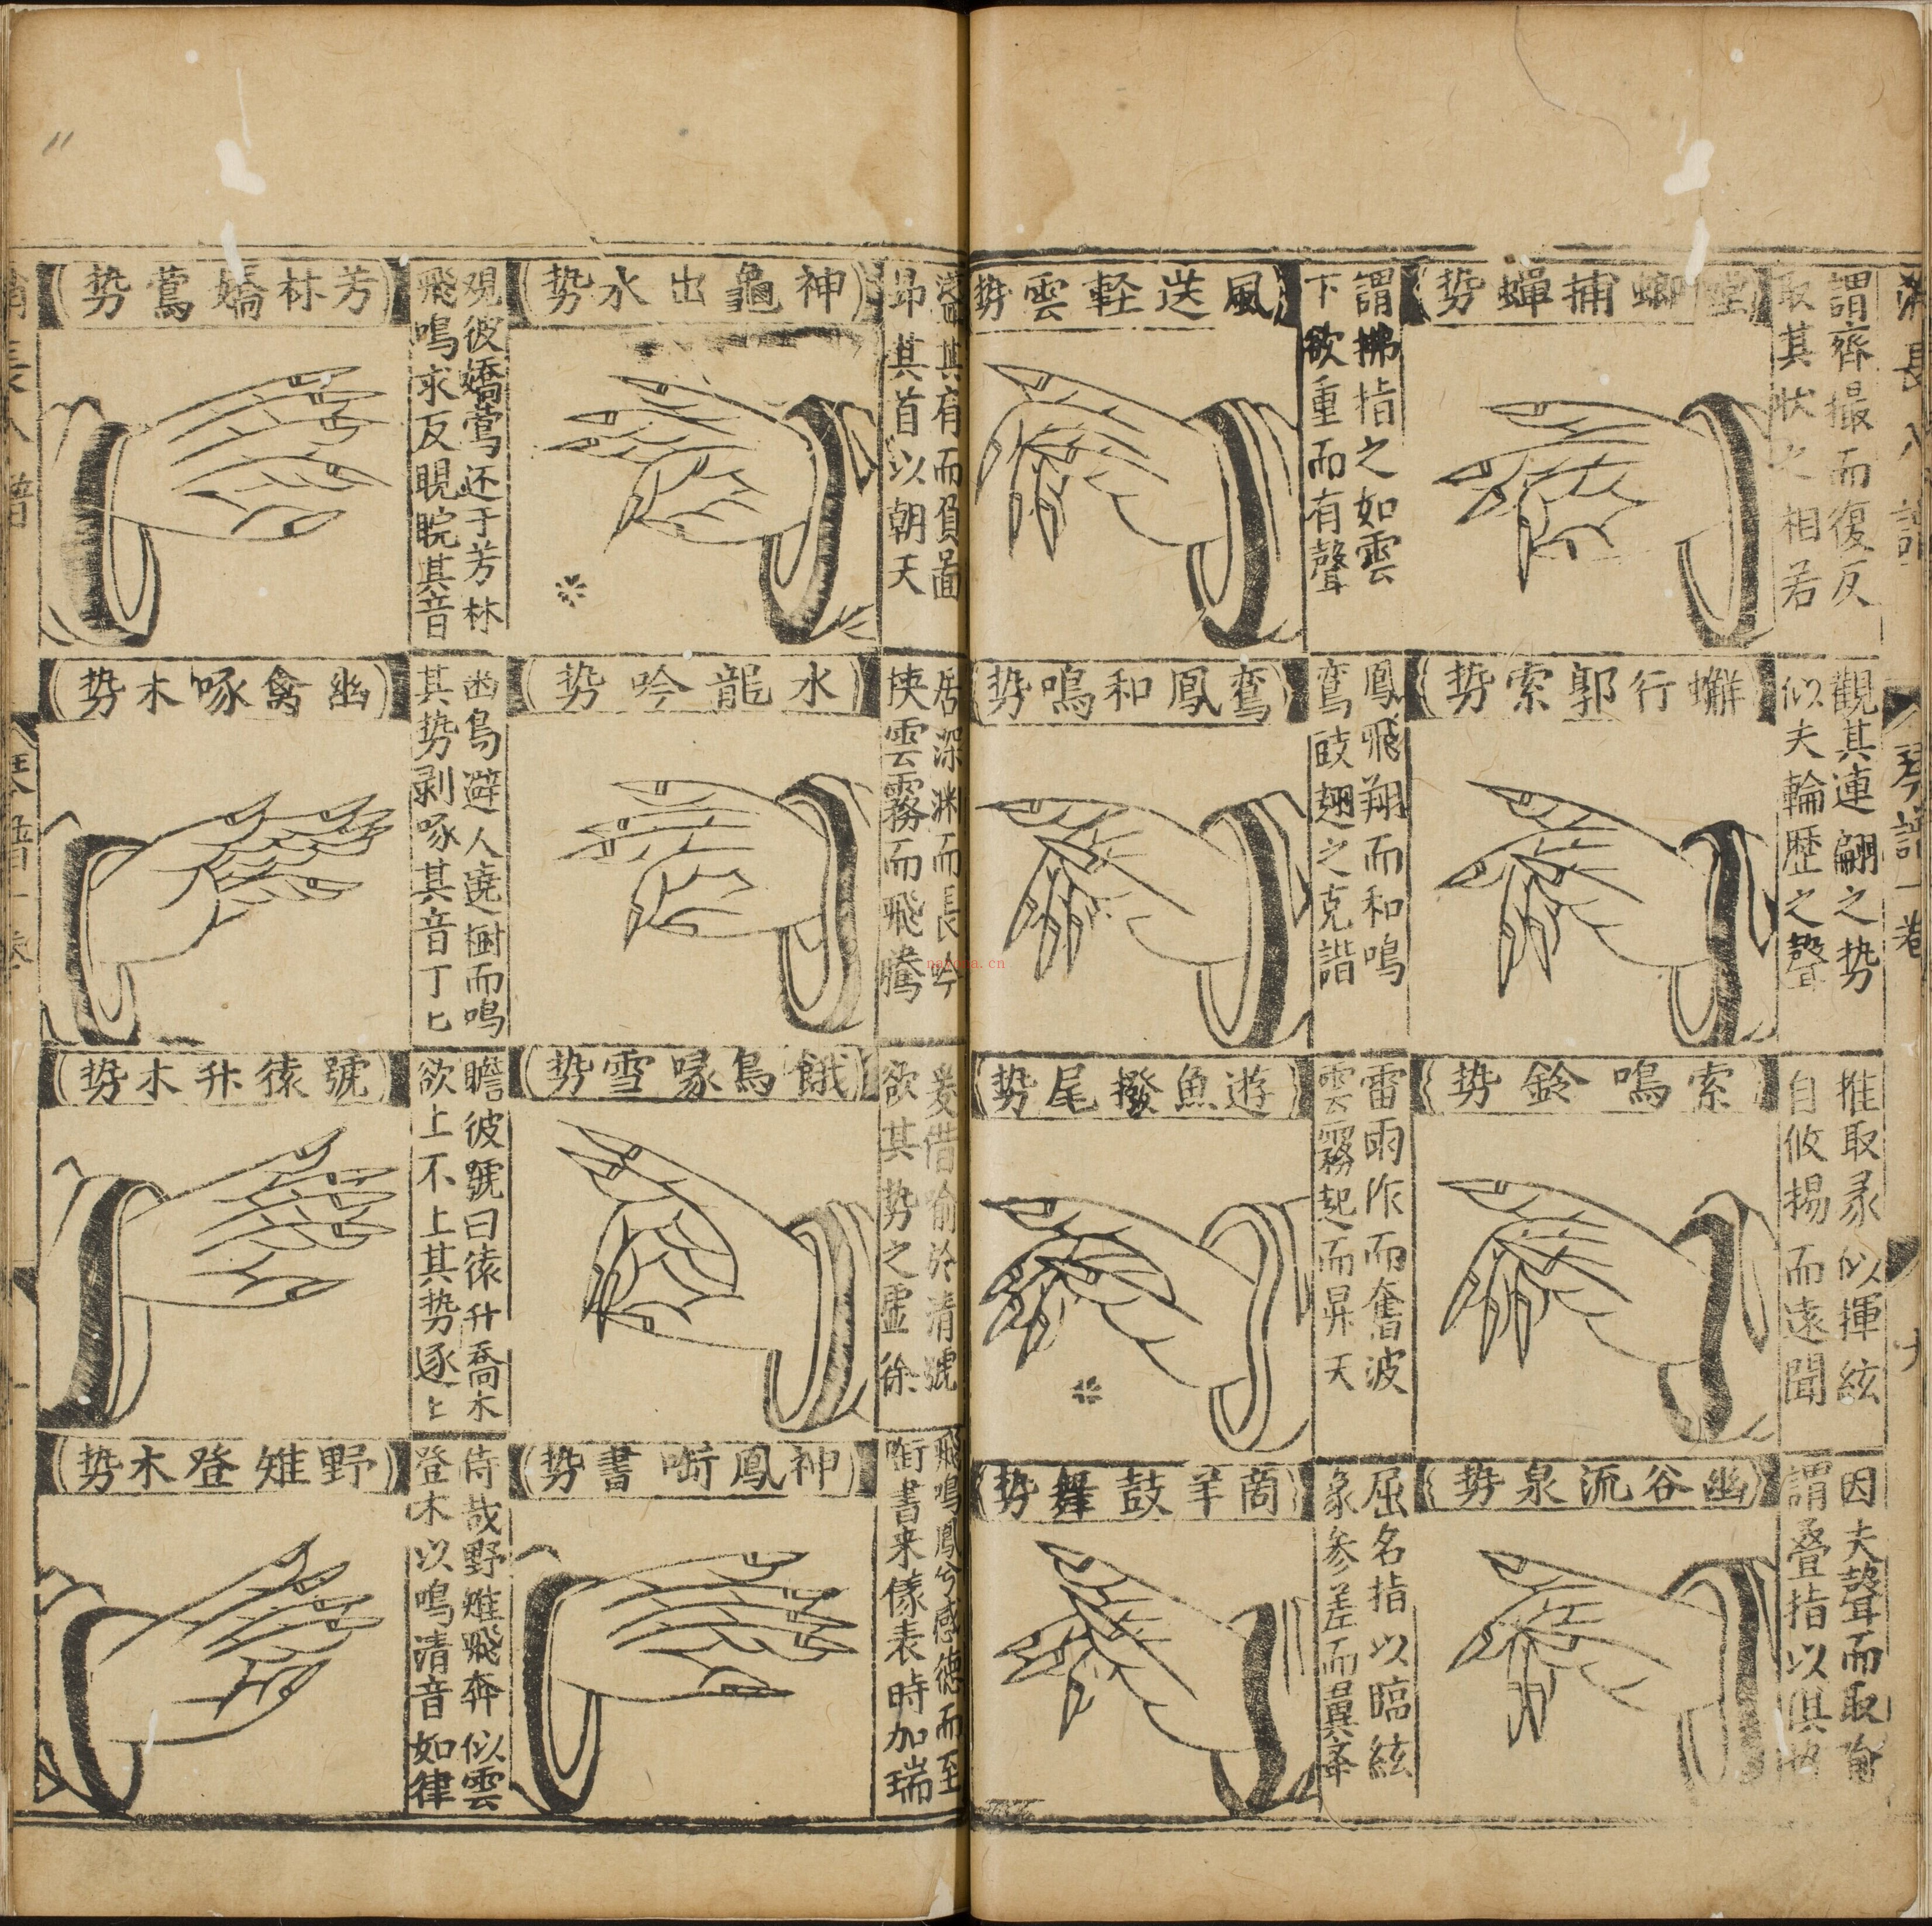 謂齊撮而復反
取其狀之相若
螗螂捕蟬势
謂拂指之如雲
下欲重而有聲
風送軽雲势
觀其連翩之势
似夫輪歴之聲
蠏行郭索势
鳳飛翔而和鳴
鸞跂翅之克諧
鸞鳳和鳴势
推取彖以揮絃
自攸揚而遠聞
索鳴鈴势
雷雨作而奮波
雲霧起而昇天
遊魚撥尾势
因夫聲而取
謂疊指以俱
幽谷流泉势
屈名指以臨絃
象参差而翼
商羊鼓舞势
其有而負啚
昻其首以朝天
神龜出水势
观彼嬌鶯还于芳林
飛鳴求反睍睆其音
芳林嬌鶯势
居深渊而長吟
挟雲霧而飛騰
水龍吟势
幽鳥避人遶樹而鳴
其势剥啄其音丁匕
幽禽啄木势
爰借喻於清號
欲其势之虛徐
餓鳥喙雪势
瞻彼號曰猿升喬木
欲上不上其势逐匕
號猿升木势
飛鳴鳳兮感德而至
銜書来儀表時加瑞
神鳳啣書势
侍哉野雉飛奔似雲
登木以鳴清音如律
野雉登木势
琴譜一卷
na.cn